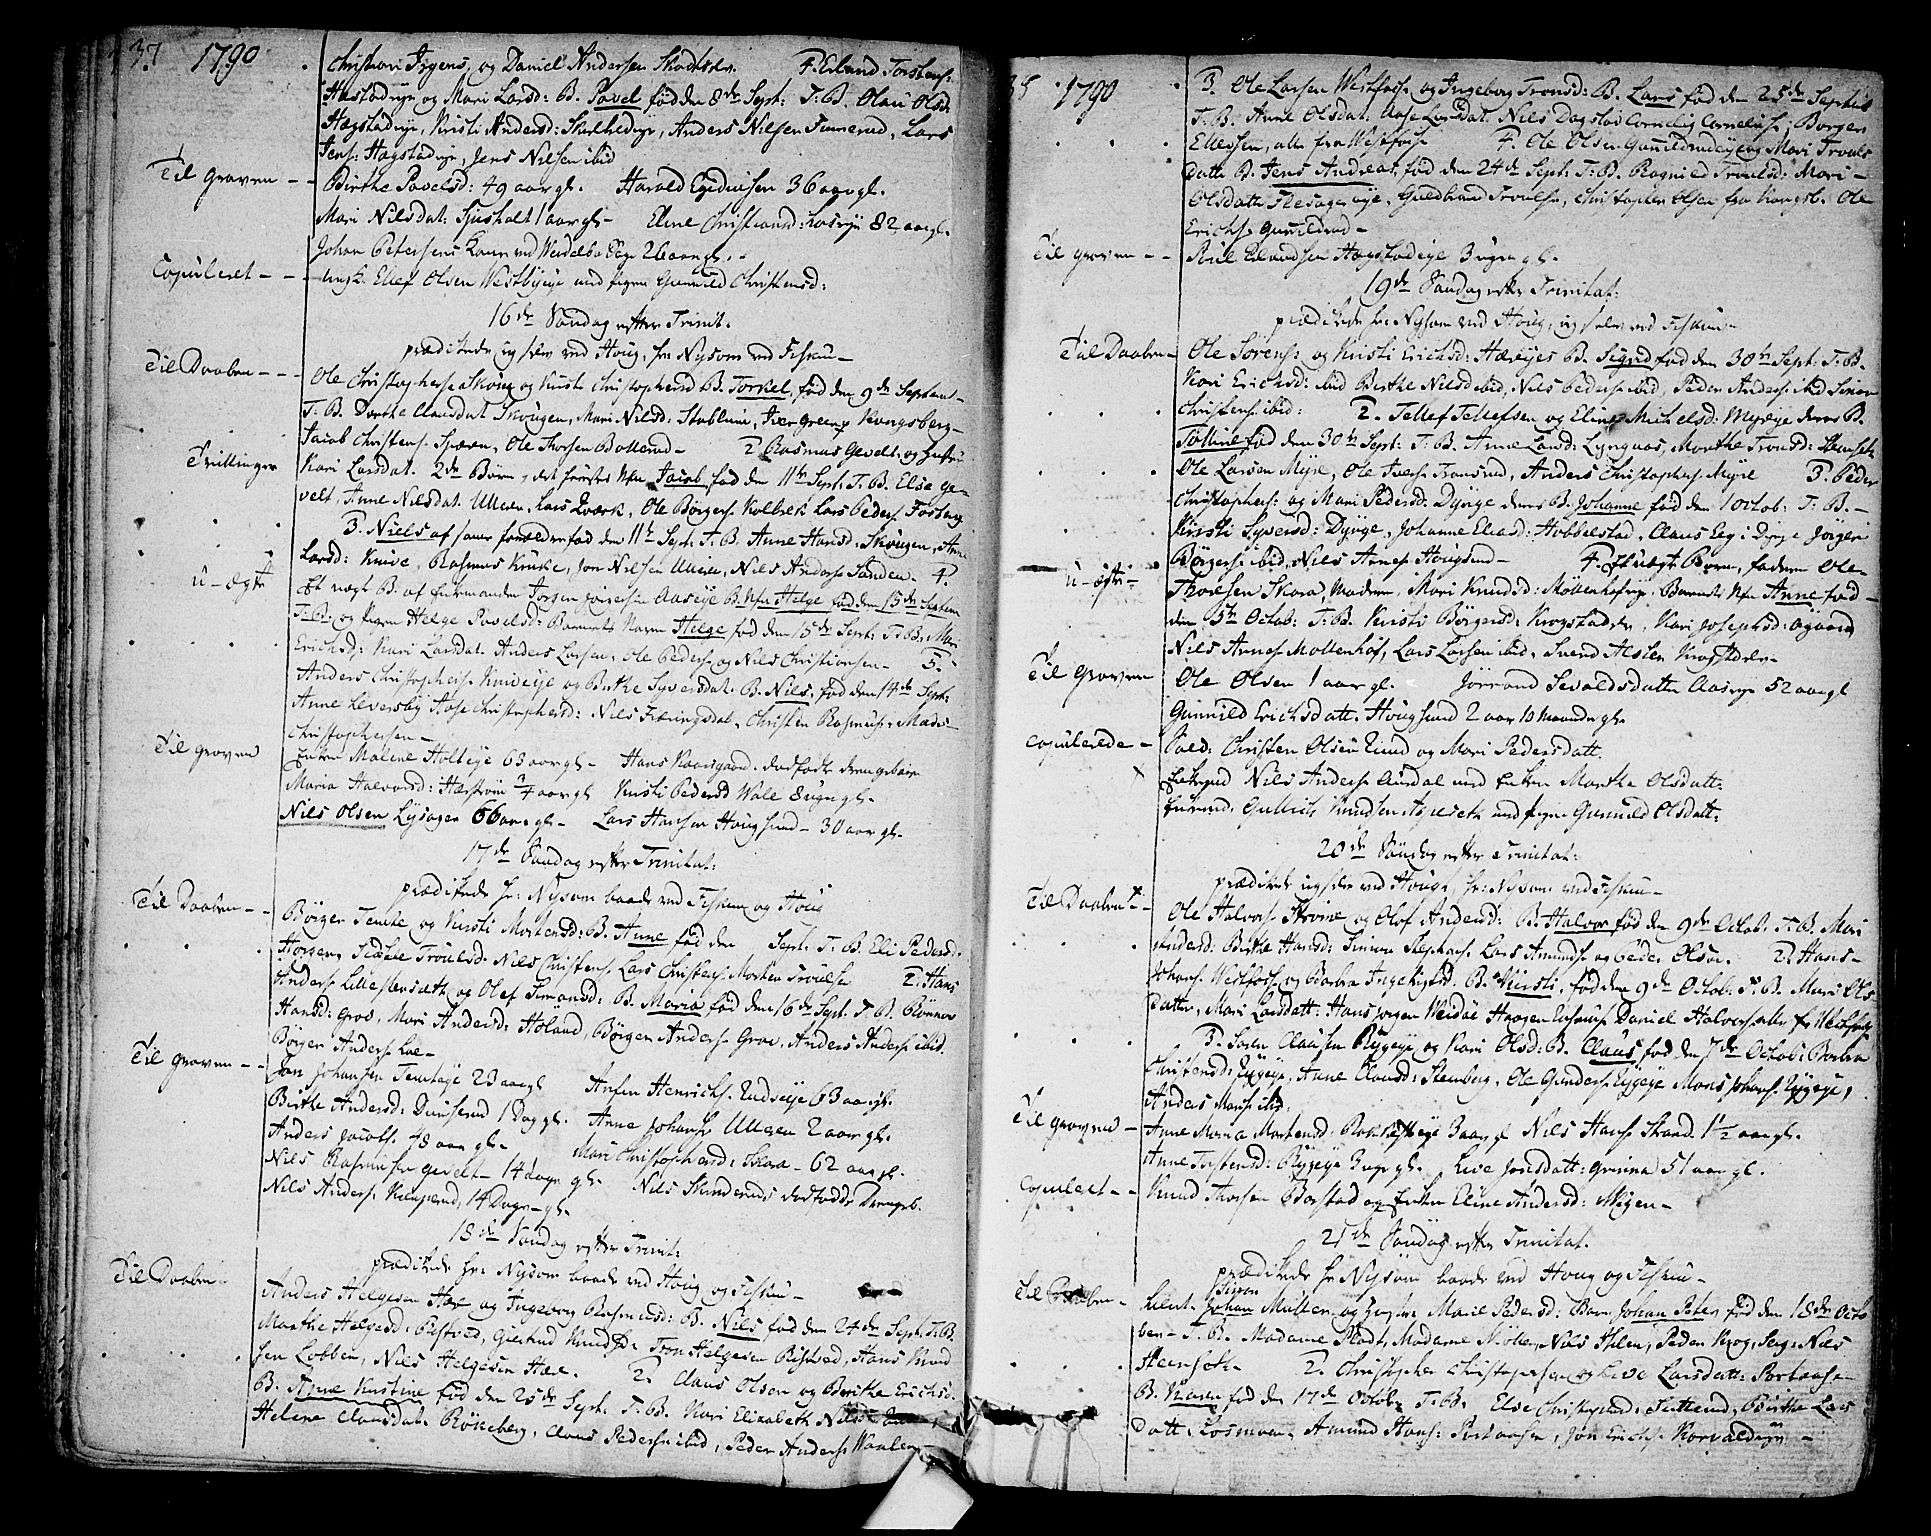 37. 1790
Christiani Jrgens, og Daniel Andersen 4. Erland Torstens:
Hagstadeye og Mari Larsd: B. Pavel fød den 8de Sept: T. B. Olau Olsd:
Hagstadeye, Kirsti Andersd: Anders Nilsen Lars
Jens: Hagstadeye, Jens Nilsen ibid
Til Graven - - Birthe Pavelsd: 49 aar gl. Harald 36 aar gl.
Mari Nilsdat: 1 aar gl - Eline Christiansd: 82 aar gl.
Johan Petersens Kone ved 26 aar gl. -
Copuleret - - - Ungk. Ellef Olsen Westbyeye med Pigen Gunnild Christensd:
16de Søndag efter Trinit.
prædikede og selv ved Houg, hr. Nysom ved Fiskum -
Til Daaben - - - Ole Christophers: Skoug og Kirsti Christophersd B. Torkel, fød den 9de Septemb -
T. B. Dorthe Clausdat Skougen, Mari Nilsd: Stablum, Iver Green Kongsberg -
Jacob Christens: Ole Thorsen Bollerud - 2. Rasmus Gevelt og Hustru
Trillinger Kari Larsdat. 2de Børn, det første Nfn Jacob fød den 11te Sept: T. B. Else Ge-
velt, Anne Nilsdat. Ulleren, Lars Qværk, Ole Børgers: Kolbrek Lars Peders: Fosberg
3. Niels af same forældre fød den 11te Sept: T. B. Anne Hansd: Skougen, Anne
Larsd: Knive, Rasmus Jon Nilsen Ulleren, Nils Anders: Sanden - 4.
u-ægte Et uægte B. af Enkemanden Jørgen Aaseye B. Nfn Helge fød den 15de Septem
T. B. og Pigen Helge Pavelsd: Barnets Navn Helge fød den 15de Sept: T. B. Mari
Erichsd: Kari Larsdat. Anders Larsen, Ole Peders: og Nils Christiansen - 5.
Anders Christophers: Kniveeye og Birthe Syversdat. B. Nils, fød den 14de Sept:
Anne Leversby Aase Christophersd: Nils Christen Rasmus: Mads
Christophersen -
Til Graven Enken Malene Holteye 63 aar gl - Hans dødfødte drengebarn
Maria Halvorsd: 3/4 aar gl Kirsti Pedersd Wale 8 uger gl -
Nils Olsen Lysager 66 aar gl - Lars Hansen Hougsund - 30 aar gl -
17de Søndag efter Trinitat:
prædikede hr: Nysom baade ved Fiskum og Houg
Til Daaben - - Børger Temte og Kirsti Mortensd: B. Anne fød den Sept: T. B. Eli Pedersd.
Horgen, Troulsd. Nils Christens: Lars Christens: Morten Trouls: 2. Hans
Anders: og Olef Simonsd: B. Maria fød den 16de Sept: T. B. Rønnov
Hansd: Grov, Mari Andersd: Holand, Børger Anders: Grov, Anders Anders: ibid.
Børger Anders: Loe -
Til Graven - - Jon Johansen Temteye 23 aar gl Anfin Henrichs: Rudseye 63 aar gl.
Birthe Andersd: Dunserud 1 Dag gl. Anne Johans: Ulleren 2 aar gl.
Anders Jacobs. 48 aar gl. - Mari Christophersd: Skara - 62 aar gl.
Nils Rasmusen Gevelt - 14 dage gl. Nils Skinderuds dødfødde Drengeb.
Nils Anders: 14 Dage - gl.
18de Søndag efter Trinit:
prædikede hr: Nysom baade ved Houg og Fiskum -
Til Daaben - Anders Helgesen Hære og Ingeborg Rasmusd: B. Nils fød den 24de Sept: T. B.
Marthe Helgesd: Ristved, Giertrud Knudsd: Tron Helgesen Ristved, Hans Knud
sen Lobben, Nils Helgesen Hære. 2. Claus Olsen og Berthe Erichsd.
B. Anne Kirstine fød den 25de Sept: T. B. Kari Elisabeth
Helene Clausdat. Røneberg, Claus Peders: ibid, Peder Anders: Waalen
38 1790 3. Ole Larsen Westfos: og Ingeborg Tronsd: B. Lars fød den 25de Septbr
T. B. Anne Olsdat. Aase Larsdat. Nils Dagslad Cornelis Cornelius: Børger
Ellevsen, alle fra Westfosse 4. Ole Olsen Gunildrudeye og Mari Trouls
datt. B. Jens Andreas, fød den 24de Sept: T. B. Ragnild Troulsd: Mari -
Olsdatt. Flesageeye, Guldbrand Troulse, Christopher Olsen fra Kongsb. Ole
Erichs. Gunildrud -
Til Graven - - Poul Erlandsen Hagstadeye 3 uger gl. -
19de Søndag efter Trinitat:
prædikede hr: Nysom ved Houg, og selv ved Fiskum -
Til Daaben - Ole Sørens: og Kirsti Erichsd: B. Sigrid fød den 30te Sept: T. B.
Kari Erichsd: ibid Birthe Nilsd ibid, Nils Peders: ibid, Peder Anders: ibid Simon
Christens: ibid: 2. Tellef Tellefsen og Eline Michelsd: Myreye deres B.
Tolline fød den 30te Sept: T. B. Anne Larsd: Lyngaas, Marthe Tronsd: Stenset
Ole Larsen Myre, Ole Ivers: Tronrud, Anders Christophers: Myre 3. Peder
Christophers: og Mari Pedersd. Dyrige deres B. Johanne fød den 1 Octob: T. B. -
Kirsti Syversd: Dyrige, Johanne Eliasd: Hobbelstad, Claus Eeg i Dyrige Jørgen
Børgers: ibid, Nils Arnes: Hougsund - 4. Et uægte Barn, faderen Ole -
u-ægte - Thoresen Skara, Moderen, Mari Knudsd: Møllenhofeye, Barnets Nfn Anne fød -
den 5te Octob: T. B. Kirsti Børgersd: Krogstadelv, Kari Josephsd:
Nils Arnes: Møllenhof, Lars Larsen ibid, Svend Alsten Krogstadelv -
Til Graven Ole Olsen 1 aar gl. Jørrand Sevaldsdatter Aaseye 52 aar gl
Gunnild Erichsdatt. Hougsund 2 aar 10 maaneder gl.
Copulerede - Sold: Christen Olsen Lund og Mari Pedersdatt.
x Enkemand Nils Anders: Aundal med Enken Marthe Olsdatt.
Enkemand. Gulbrich Knudsen med Pigen Gunnild Olsdatt:
20de Søndag efter Trinitat:
prædikede og selv ved Houg, hr: Nysom ved Fiskum -
Til Daaben - Ole Halvors: Skrime og Olof Andersd: B. Halvor fød den 9de Octob. T. B. Mari
Andersd: Birthe Hansd: Simon Stephans: Lars Amunds: og Peder Olsen. 2. Hans -
Johans: Westfos: og Barbra Ingebrigtsd: B. Kirsti, fød den 9de Octob: T. B. Mari Ols
datter, Mari Larsdatt: Hans Jørgen Weidal Haagen Daniel Halvors: alle fr. Westfosse
3. Søren Clausen Rygeye og Kari Olsd: B. Claus fød den 7de Octob: Barbra
Christensd: Rygeye, Anne Clausd: Stenberg, Ole Gunders: Rygeye Mons Johans: Rygeye,
Anders Mons: ibid.
Til Graven - Anne Maria Mortensd: 3 aar gl Nils Hans: Strand 1 1/2 aar gl.
Anne Torstensd: Rygeye 3 uger gl. Live Jonsdatt: 51 aar gl.
Copuleret - - Knud Thorsen Borstad og Enken Eline Andersd: Megen -
21de Søndag efter Trinitat.
prædikede hr Nysom baade ved Houg og Fiskum -
Simon
Til Daaben - Lieut - Johan Müller, og Hustru Marie Pedersd: Barn Johan Peter fød den 18de Octo
ber - T. B. Madame Stodt, Madame Nils Ihlen, Peder Krog, Sr. Nils
Steensett - 2. Christopher Christophersen og Live Larsdatt: Portaase -
B. Karen fød den 17de Octobr T. B. Else Christophersd: Birthe Lars
datt: Losmoen, Amund Hans: Portaasen, Jon Erichs: Korvaldeye -